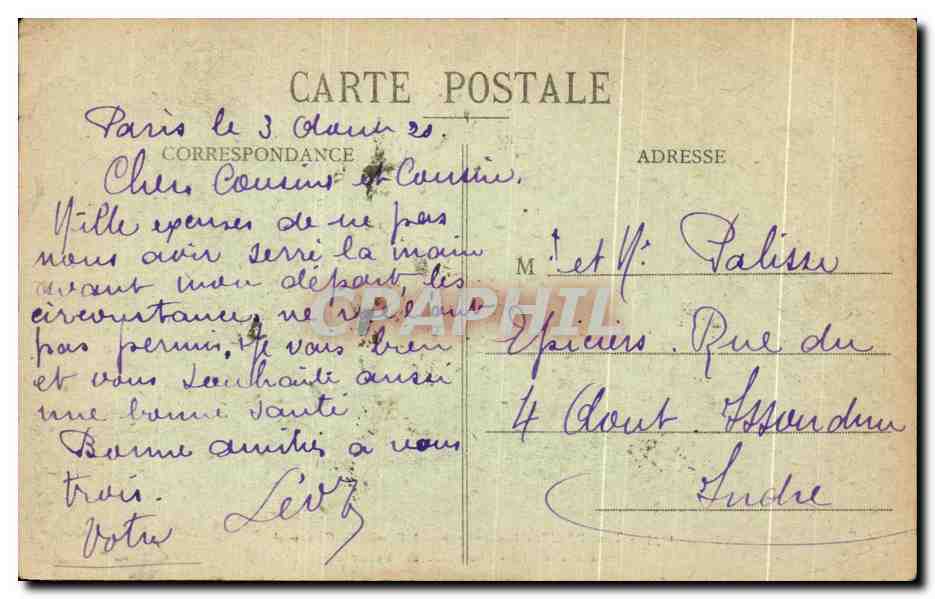 CARTE POSTALE
Paris le 3 Aout 20.
CORRESPONDANCE
Chers Cousins et Cousine.
Mille excuses de ne pas
vous avoir serré la main
avant mon départ, les
circonstances ne me l'ont
pas permis. Je vais bien
et vous souhaite aussi
une bonne santé
Bonne amitiés à vous
trois.
Votre
ADRESSE
M et Me Palisse
Epiciers. Rue du
4 Aout Issoudun
Indre
CRAPHIL